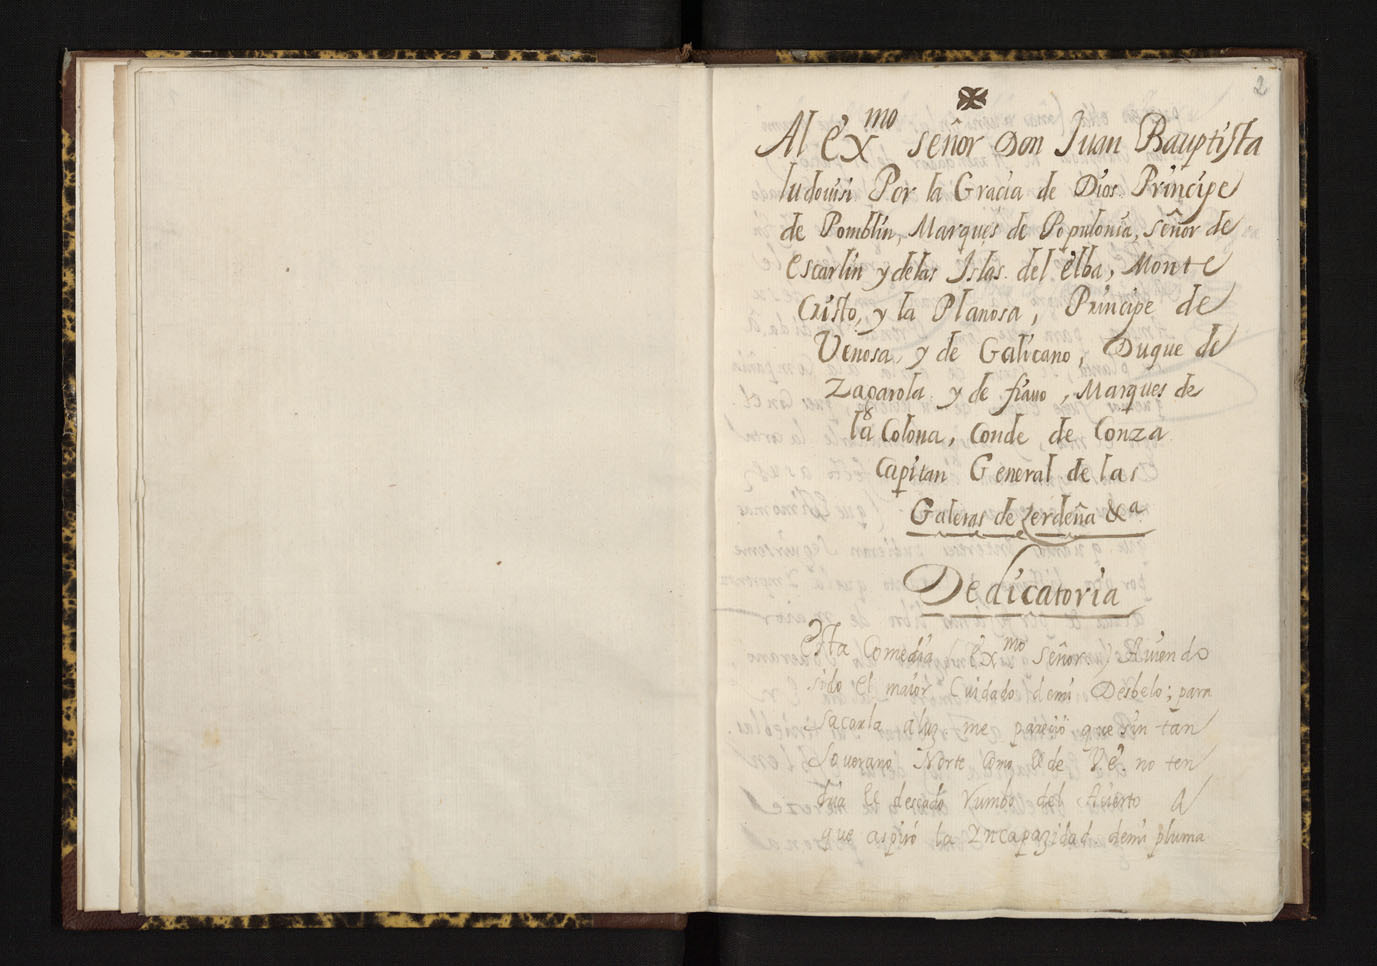 2
Al Exmo señor Don Juan Bauptista
ludouisi Por la Gracia de Dios. Principe
de Pomblin, Marques de Populonia, señor de
Escarlin y de las Islas del elba, Monte
Cristo, y la Planosa, Principe de
Venosa, y de Galicano, Duque de
Zagarola y de fiano, Marques de
la Colona, Conde de Conza
Capitan General de las
Galeras de Zerdeña &a
Dedicatoria
Esta Comedia Exmo señor, Auiendo
sido el maior Cuidado demi Desbelo; para
sacarla a luz, me pareçio que sin tan
Souerano Norte como el de V.E. no ten
dria el deseado Rumbo del Acierto a
que aspiró la Incapazidad demi pluma